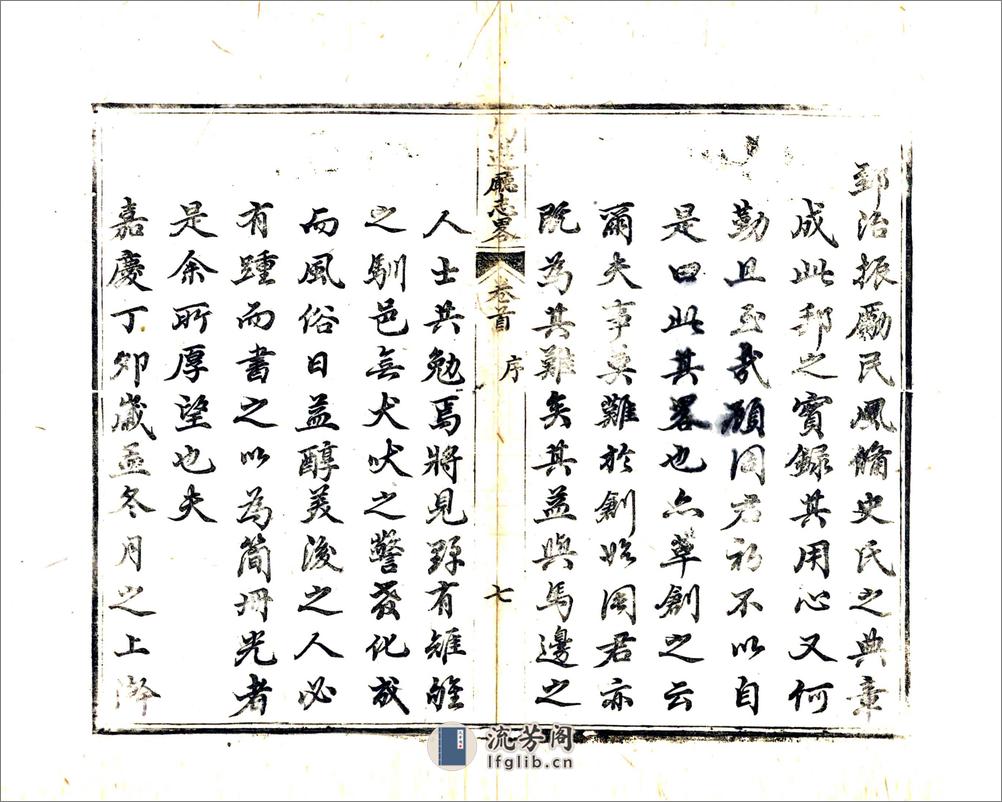 郅治振勵民風脩史氏之典章
成此邦之實錄其用心又何
勤且至哉顧周君初不以自
是曰此其畧也亦草創之云
爾夫事莫難於創始周君亦
既為其難矣其益與馬邊之
馬邊廳志畧 卷首 序 七
人士共勉焉將見野有雉雊
之馴邑無犬吠之警發化成
而風俗日益醇美後之人必
有踵而書之以為簡冊光者
是余所厚望也夫
嘉慶丁卯歲孟冬月之上澣
流芳阁
lfglib.cn